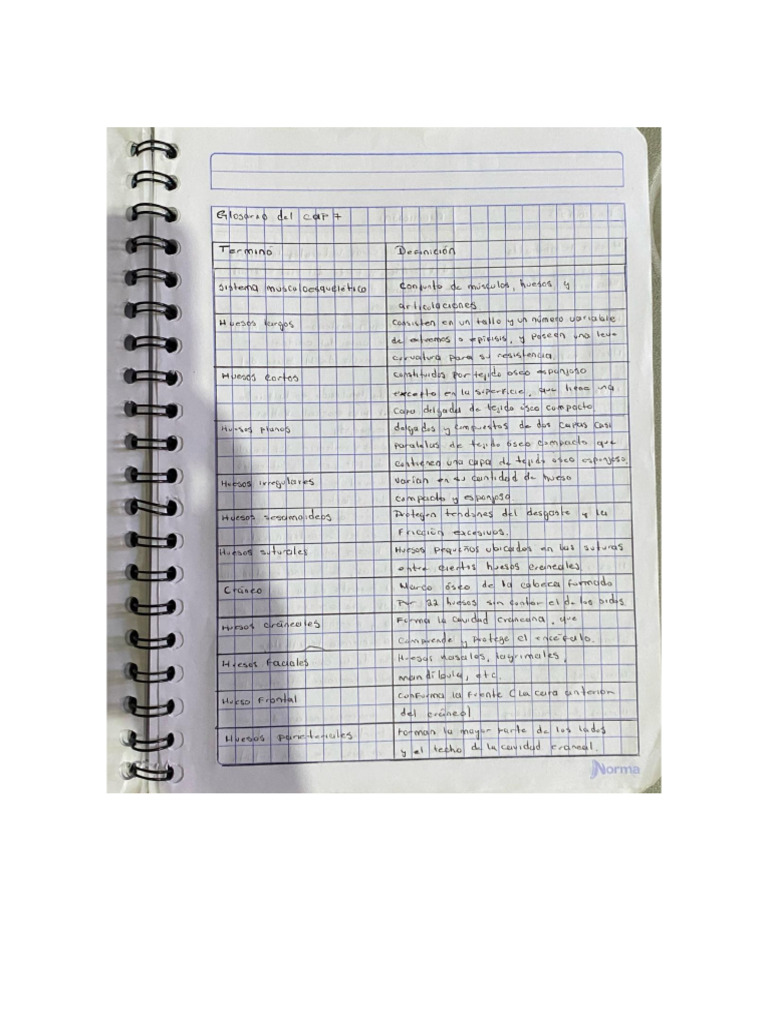 Glosario del cap 7
Termino Definición
Sistema musculoesquelético Conjunto de músculos, huesos y
articulaciones
Huesos largos Consisten en un tallo y un número variable
de extremos o epífisis, y poseen una leve
curvatura para su resistencia.
Huesos cortos Constituidos por tejido óseo esponjoso
excepto en la superficie, que tiene una
capa delgada de tejido óseo compacto
Huesos planos delgados y compuestos de dos capas casi
paralelas de tejido óseo compacto que
contienen una capa de tejido óseo esponjoso.
Huesos irregulares varian en su cantidad de hueso
compacto y esponjoso
Huesos sesamoideos Protegen tendones del desgaste y la
fricción excesivos.
Huesos suturales Huesos pequeños ubicados en las suturas
entre ciertos huesos craneales.
Cráneo Marco óseo de la cabeza formado
Por 22 huesos sin contar el de los oidos
Huesos cráneales Forma la cavidad craneana, que
comprende y protege el encéfalo.
Huesos Faciales Huesos nasales, lagrimales,
mandíbula, etc.
Hueso Frontal Conforma la frente (La cara anterior
del cráneo)
Huesos parietales Forman la mayor parte de los lados
y el techo de la cavidad craneal.
Norma